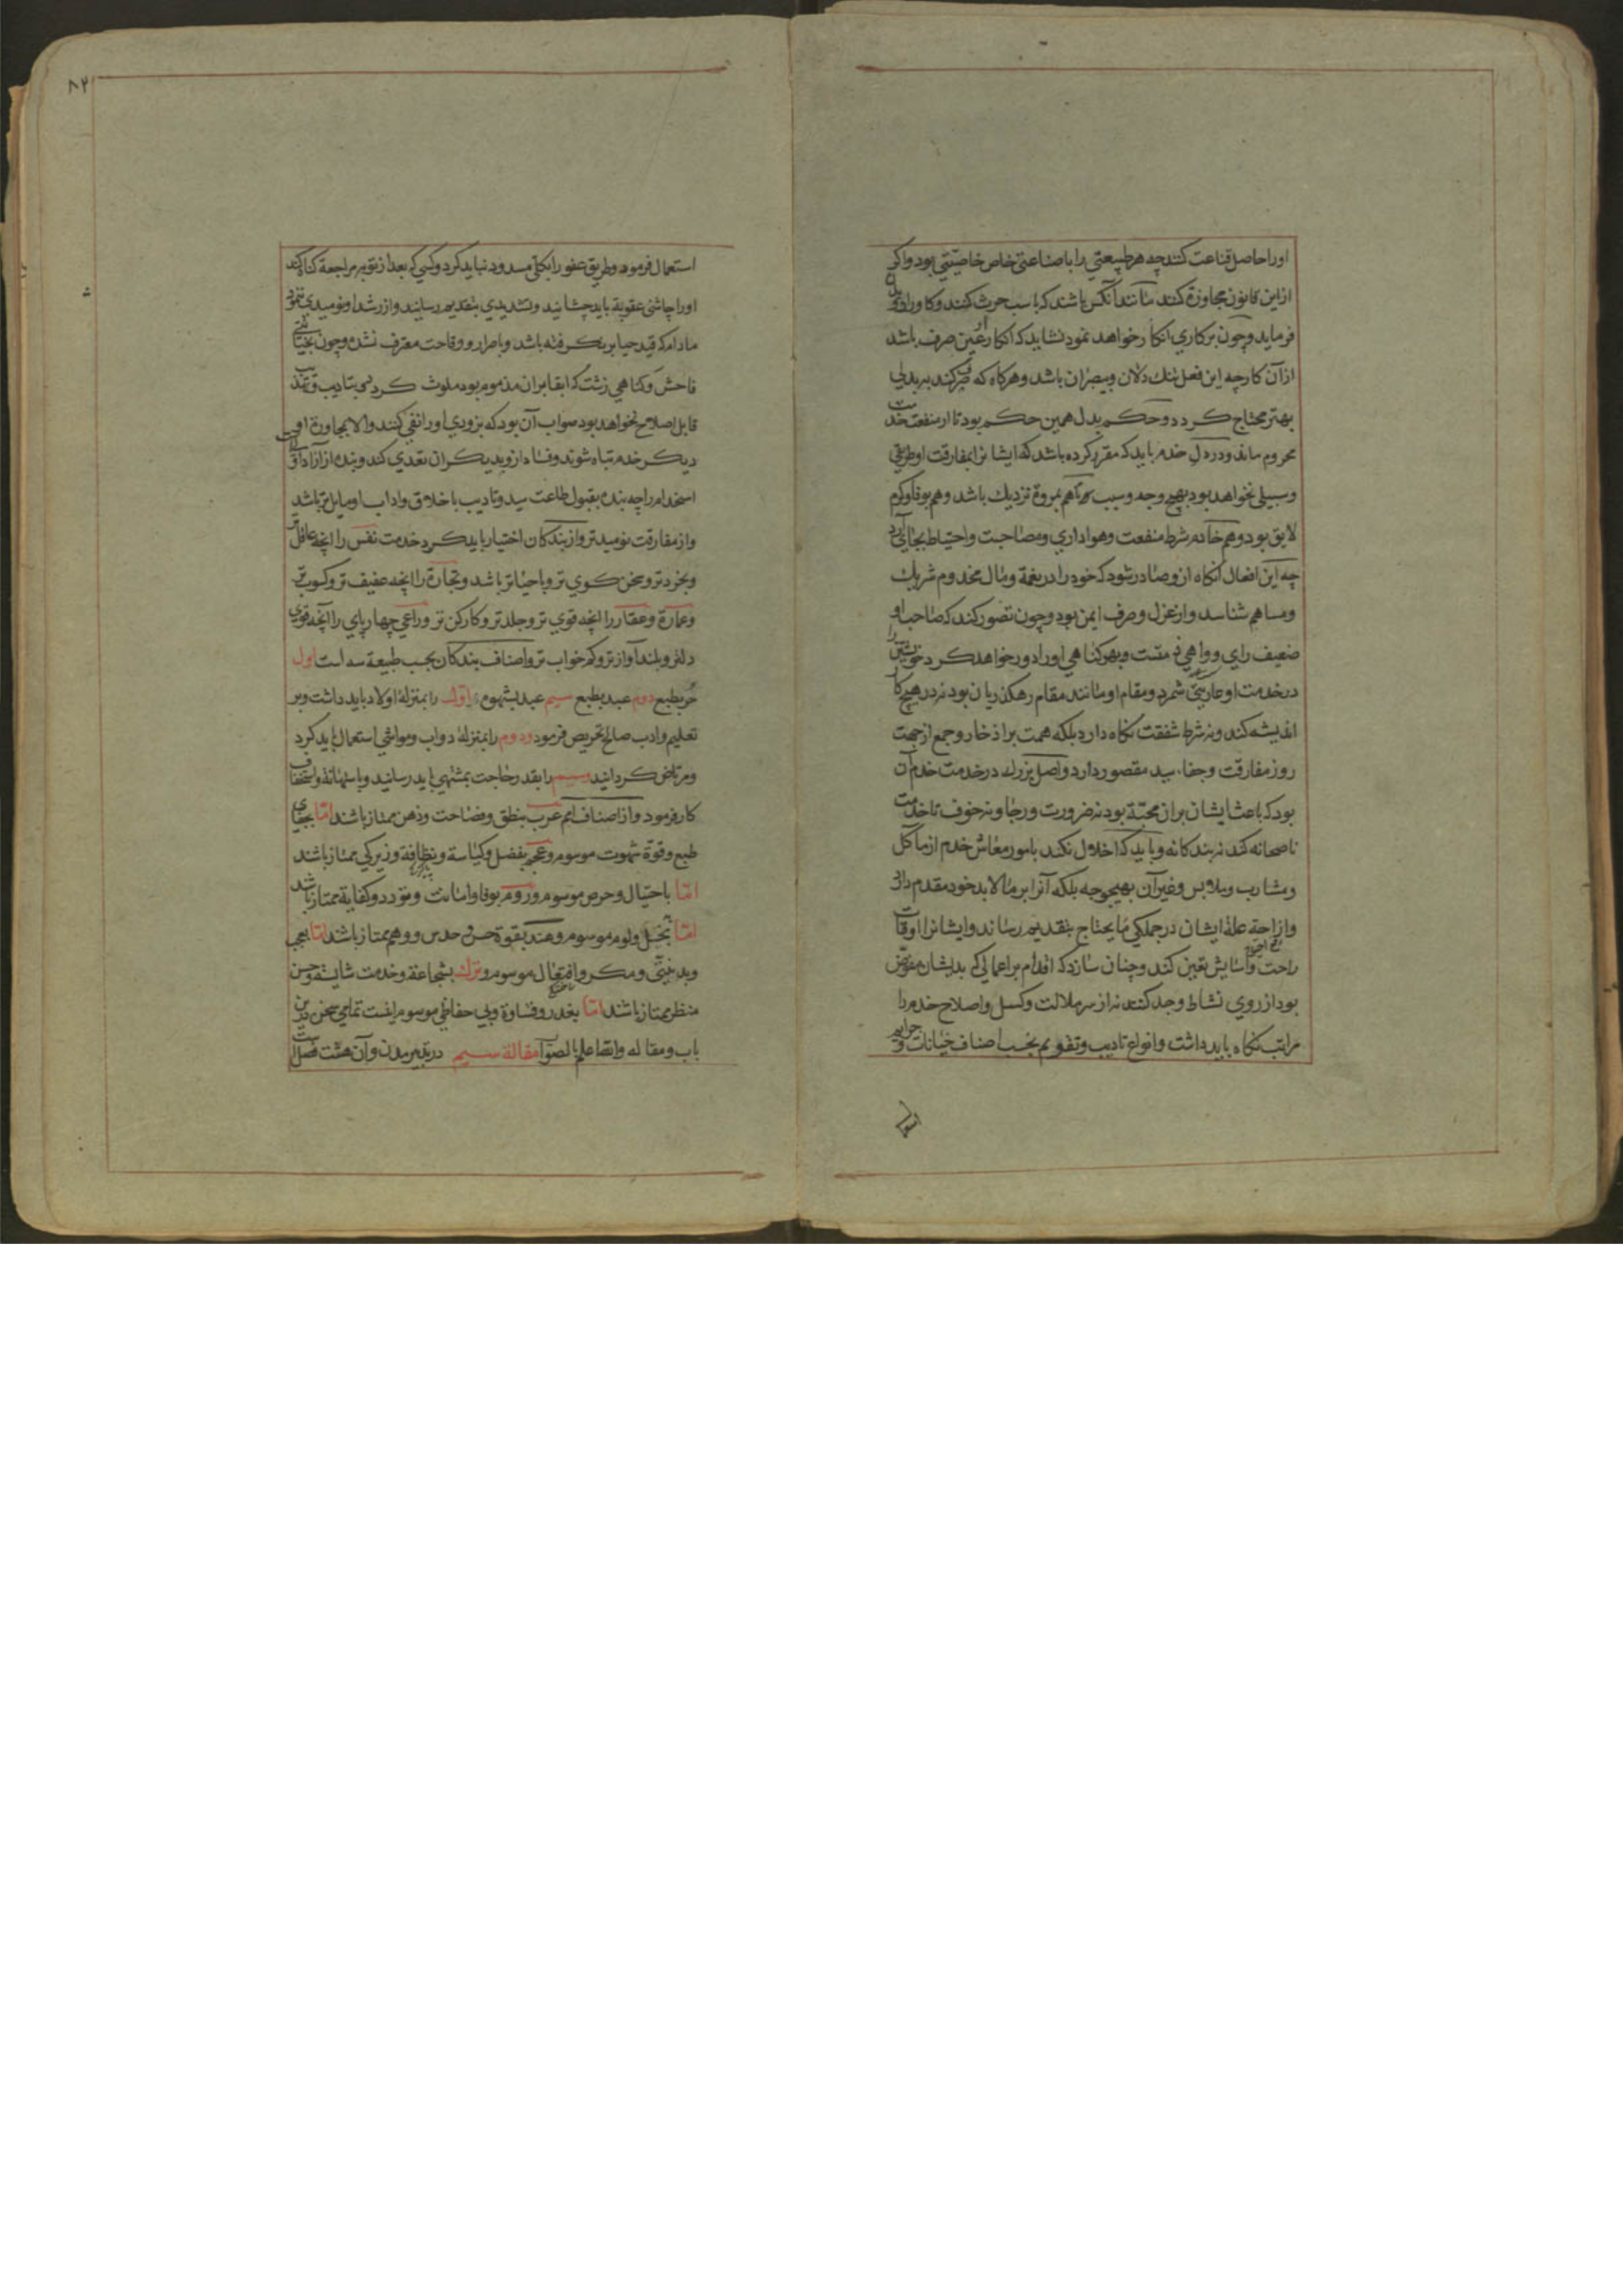 اورا حاصل قناعت کنند چه هر طبیعتی را با صناعتی خاص خاصیتی بود واکر
ازاین قانون مجاوزة کنند مانند آنکس باشند که باسب حرث کنند وکاورا دوی
فرماید وچون برکاری انکار خواهد نمود نشاید که انکار عین صرف باشد
ازآن کار چه این فعل تنك دلان وبیصبران باشد وهرکاه که صرف کند ببدلی
بهتر محتاج کردد وحکم بدل همین حکم بود تا از منفعت خدمت
محروم ماند ودر دل خدم باید که مقرر کرده باشد که ایشانرا بمفارقت او طریقی
وسبیلی نخواهد بود بهیچ وجه وسبب تا هم بمروة نزدیك باشد وهم بوفا وکرم
لایق بود وهم خادم شرط منفعت وهواداری ومصاحبت واحتیاط بجای آرد
چه این افعال آنکاه ازو صادر شود که خود را در نعمة ومال مخدوم شریك
ومساهم شناسد واز عزل وصرف ایمن بود وچون تصور کند که صاحب او
ضعیف رای وواهی ذمتست وبهر کناهی اورا دور خواهد کرد خویشتن را
در خدمت او عاریتی شمرد ومقام او مانند مقام رهکذریان بود نه در هیچ کار
اندیشه کند ونه شرط شفقت نکاه دارد بلکه همت بر اذخار وجمع از جهت
روز مفارقت وجفاء سید مقصور دارد واصل بزرك در خدمت خدم آن
بود که باعث ایشان بران محبة بود نه ضرورت ورجا ونه خوف تا خدمت
ناصحانه کند نه بندکانه وباید که اخلال نکند بامور معاش خدم از مآکل
ومشارب وملابس وغیر آن بهیچوجه بلکه آنرا بر مالابد خود مقدم دارد
وازاحة علة ایشان در جملکی ما یحتاج بتقدیم رساند وایشانرا اوقات
راحت وآسایش تعین کند وچنان سازد که اقدام بر اعمالی که بدیشان مفوض
بود از روی نشاط وجد کنند نه از سر ملالت وکسل واصلاح خدم را
مراتب نکاه باید داشت وانواع تادیب وتقویم بحسب اصناف خیانات وجرایم
استعمال فرمود وطریق عفو را بکلی مسدود نباید کرد وکسی که بعد از توبه مراجعة کناه کند
اورا چاشنی عقوبة باید چشانید وتشدیدی بتقدیم رسانید واز رشد او نومیدی ننمود
مادام که قید حیا بر نکرفته باشد وباصرار ووقاحت معترف نشده وچون بخیانتی
فاحش وکناهی زشت که ابقا بران مذموم بود ملوث کردد بتادیب وتهذیب
قابل اصلاح نخواهد بود صواب آن بود که بزودی اورا نفی کنند والا بمجاورة او
دیکر خدم تباه شوند وفساد ازو بدیکران تعدی کند وبنده از آزاد
استخدام را چه بنده بقبول طاعت سید وتادیب باخلاق واداب او مایل تر باشد
واز مفارقت نومیدتر واز بندکان اختیار باید کرد خدمت نفس را آنچه عاقل تر
وبخردتر وسخن کوی تر وباحیاتر باشد وتجارة را آنچه عفیف تر وکسوب تر
وعمارة وعقار را آنچه قوی تر وجلدتر وکارکن تر وراعی چهارپای را آنچه قوی
دلتر وبلند آوازتر وکم خواب تر واصناف بندکان بحسب طبیعة سه است اول
حر بطبع دوم عبد بطبع سیم عبد بشهوة اول را بمنزلة اولاد باید داشت وبر
تعلیم وادب صالح تحریص فرمود ودوم را بمنزلة دواب ومواشی استعمال باید کرد
ومرتاض کردانید وسیم را بقدر حاجت بمشتهی باید رسانید وباستهانة واستخفاف
کار فرمود واز اصناف امم عرب بنطق وفصاحت وذهن ممتاز باشند اما بجفای
طبع وقوة شهوت موسوم وعجم بفضل وکیاسة ونظافة وزیرکی ممتاز باشند
اما باحتیال وحرص موسوم وروم بوفا وامانت وتودد وکفایة ممتاز باشند
اما ببخل ولوم موسوم وهند بقوة حس وحدس ووهم ممتاز باشند اما بعجب
وبدنیتی ومکر وافتعال موسوم وترك بشجاعة وخدمت شایسته وحسن
منظر ممتاز باشند اما بغدر وقساوة وبی حفاظی موسوم اینست تمامی سخن درین
باب ومقاله والله اعلم بالصواب مقالة سیم در تدبیر مدن وآن هشت فصل است
استعمال